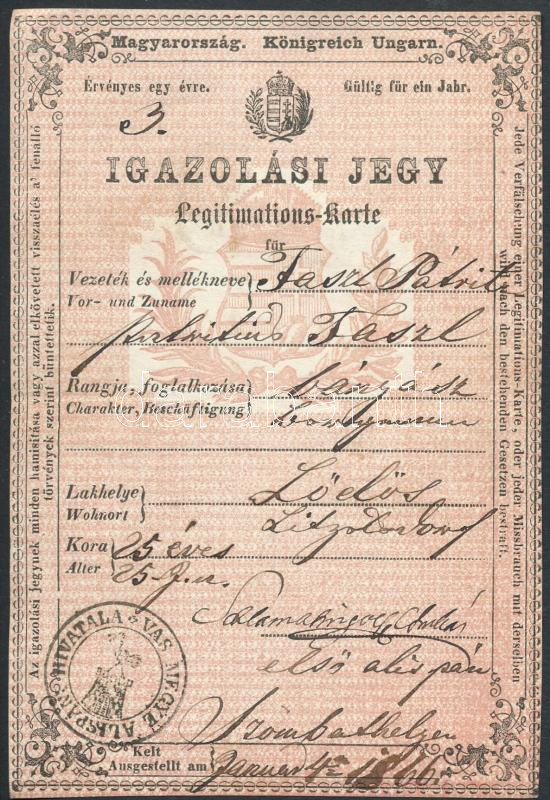 Magyarország. Königreich Ungarn.
Érvényes egy évre. Gültig für ein Jahr.
3.
IGAZOLÁSI JEGY
Legitimations-Karte
für
Vezeték és mellékneve
Vor- und Zuname
Faszl Pátrik
Faszl
Rangja, foglalkozása
Charakter, Beschäftigung
Lakhelye
Wohnort
Lődös
Litzelsdorf
Kora
Alter
25 éves
25 J.
első alispán
Szombathelyen
Kelt
Ausgestellt am
Januar 4 1866
Az igazolási jegynek minden hamisitása vagy azzal elkövetett visszaélés a' fenálló
törvények szerint büntettetik.
Jede Verfälschung einer Legitimations-Karte, oder jeder Missbrauch mit derselben
wird nach den bestehenden Gesetzen bestraft.
VAS MEGYE ALISPÁN HIVATALA